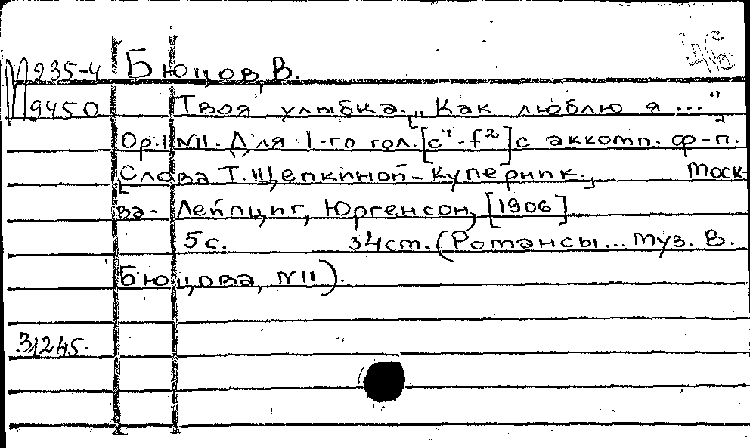 М 235-4 Бюцов, В.
9450 Твоя улыбка. „Как люблю я ..."
Op. 1 N11. Для 1-го гол. [c¹-f²] с аккомп. ф-п.
Слова Т. Щепкиной-Куперник. Моск-
ва- Лейпциг, Юргенсон, [1906]
5 с. 34 см. (Романсы... муз. В.
Бюцова, N11).
31245.